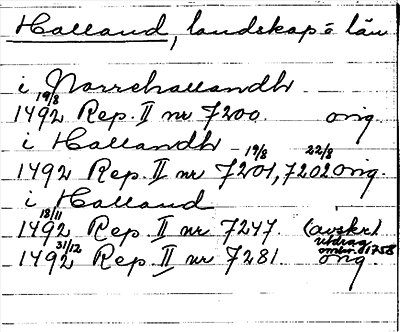 Halland, landskap = län
i Norrehallandh
19/8
1492 Rep. II nr 7200. orig.
i Hallandh
19/8 22/8
1492 Rep. II nr 7201, 7202 orig.
i Halland
18/11
1492 Rep. II nr 7247. (avskr.)
utdrag
31/12 omkr. 1758
1492 Rep. II nr 7281. orig.